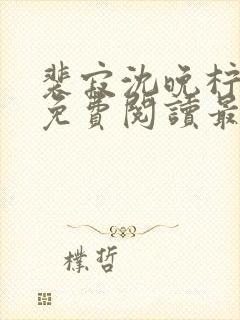 裴寂沈晚柠
免費閱讀最
樸哲